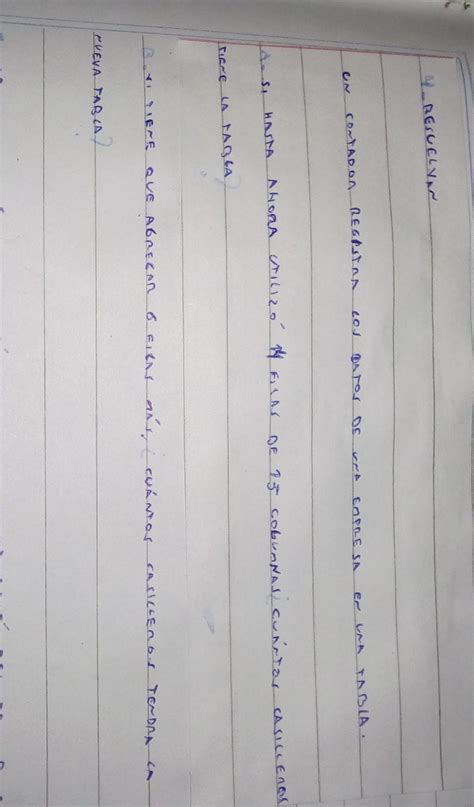 4- RESUELVAN
UN CONTADOR REGISTRA LOS DATOS DE UNA EMPRESA EN UNA TABLA.
A. SI HASTA AHORA UTILIZÓ 14 FILAS DE 15 COLUMNAS ¿CUÁNTOS CASILLEROS
TIENE LA TABLA?
B. SI TIENE QUE AGREGAR 6 FILAS MÁS, ¿CUÁNTOS CASILLEROS TENDRA LA
NUEVA TABLA?